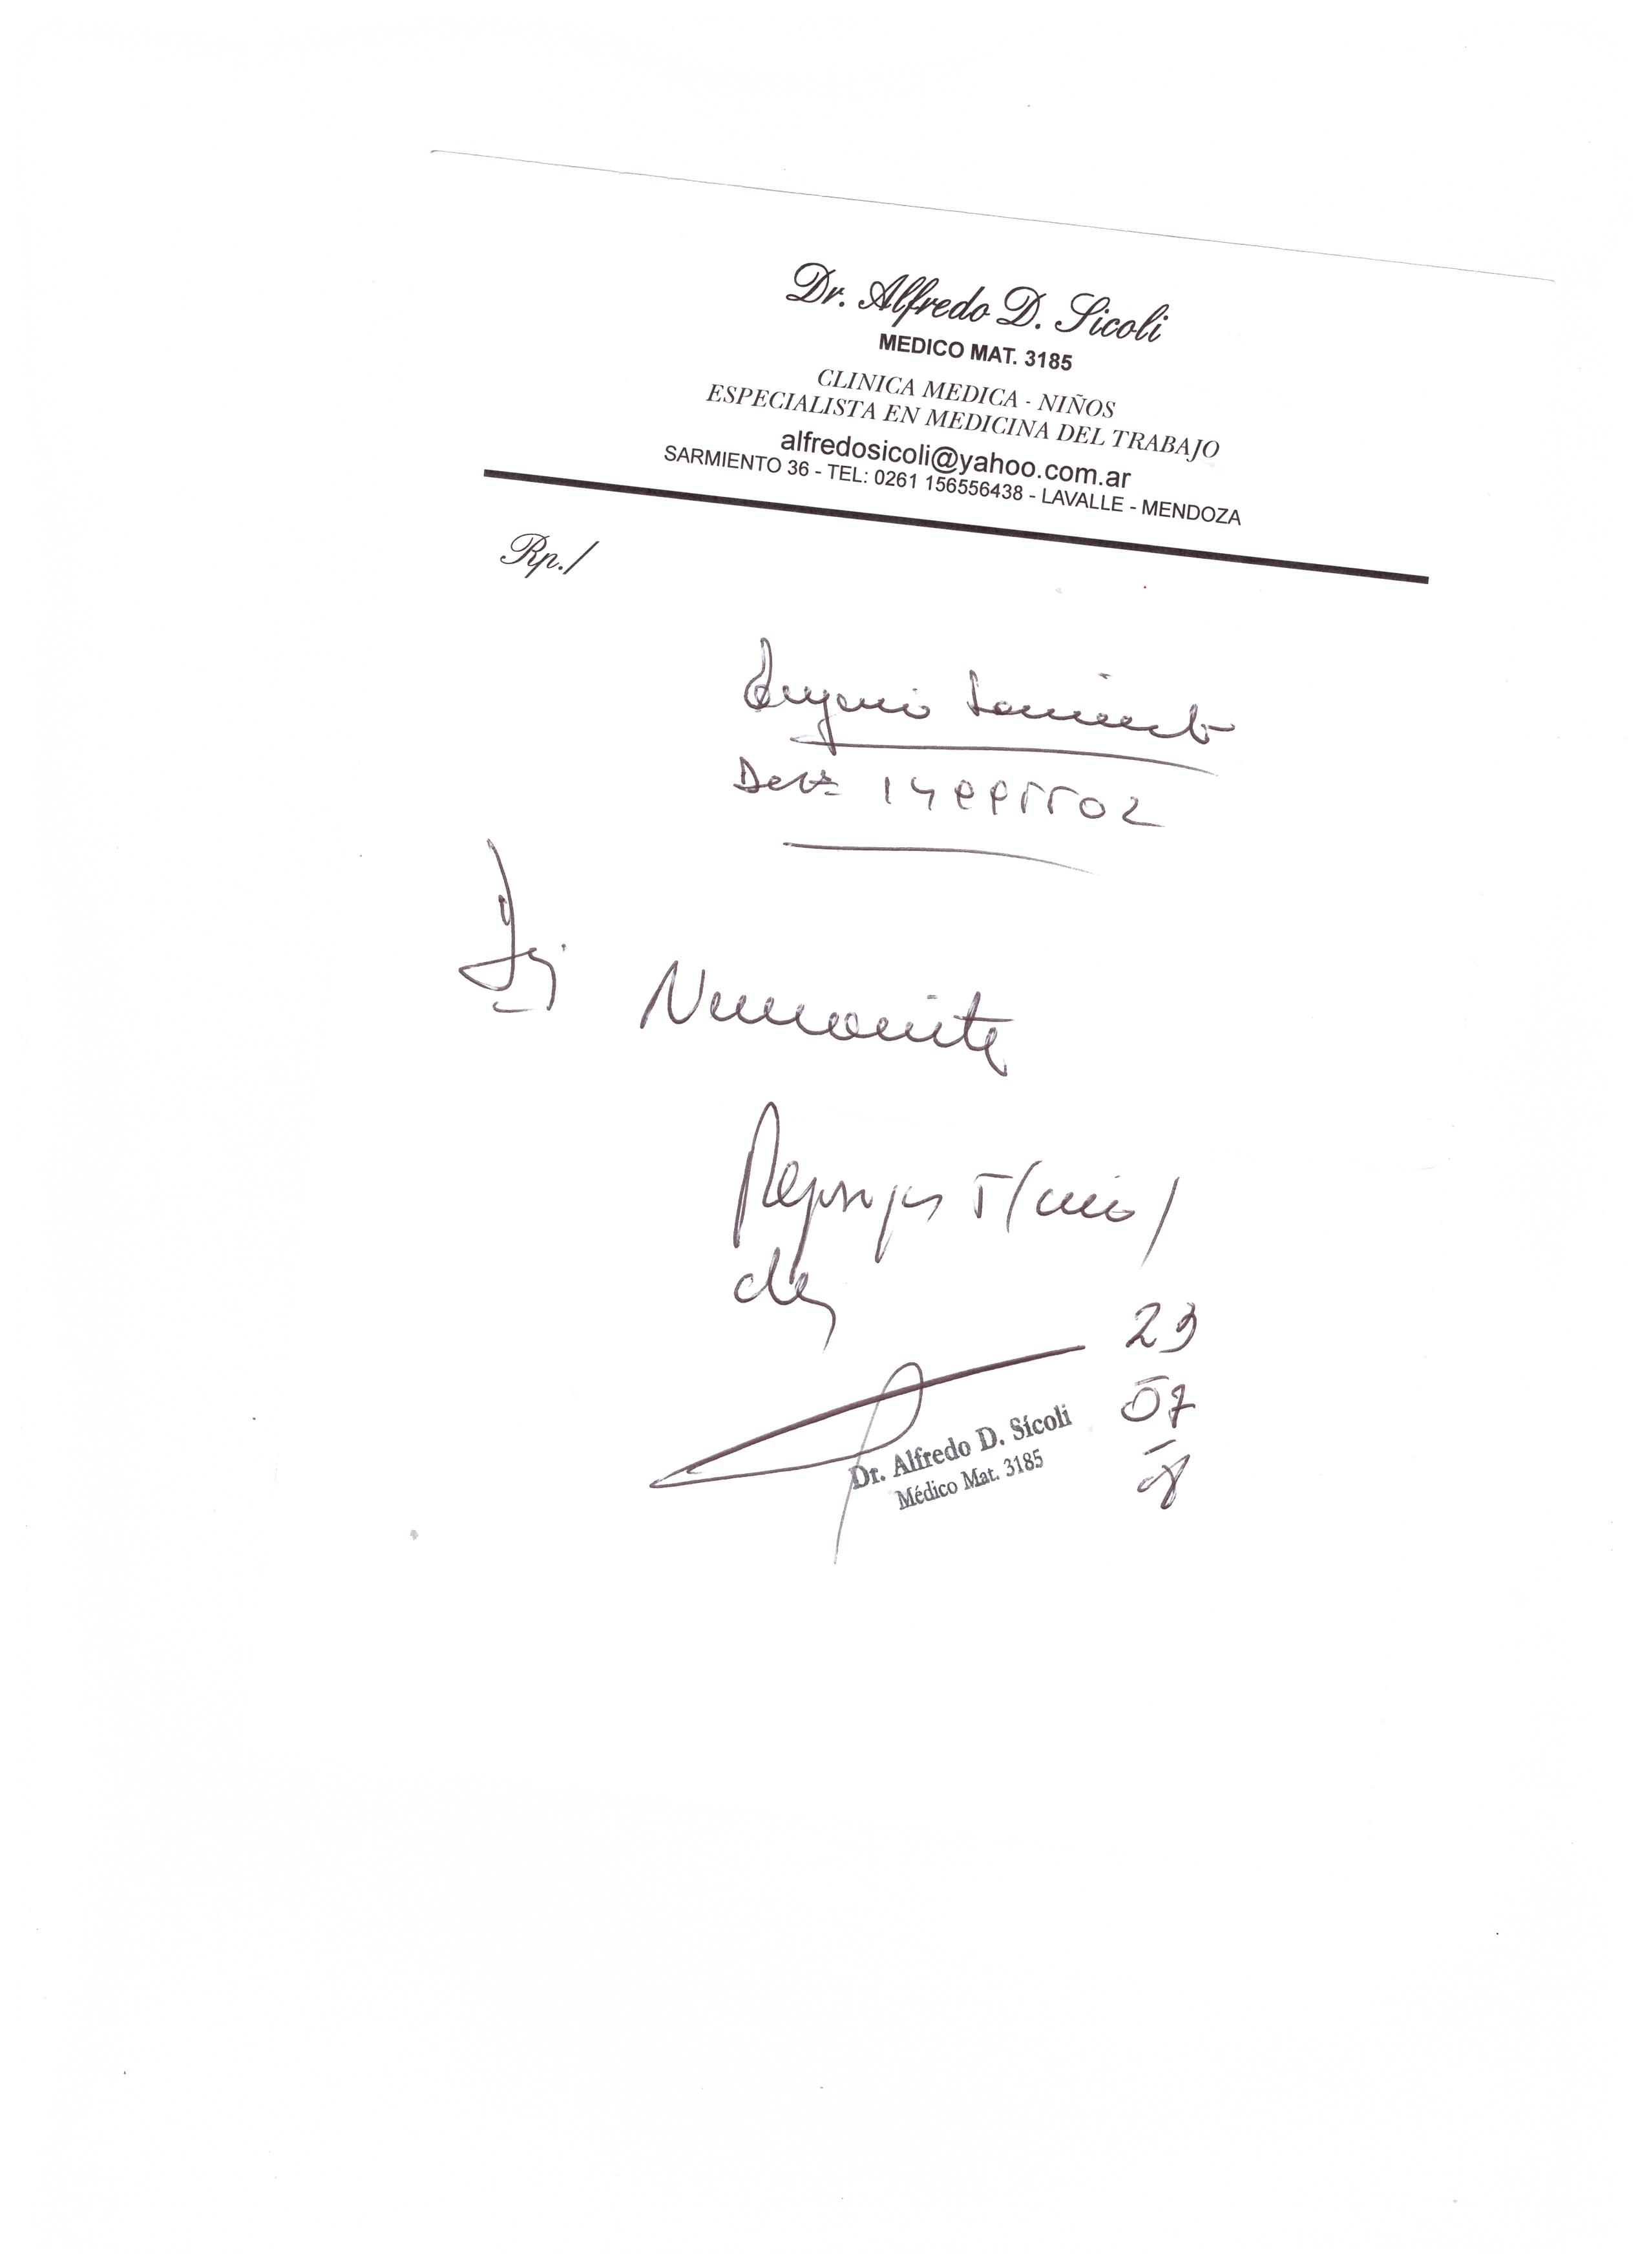 Dr. Alfredo D. Sicoli
MEDICO MAT. 3185
CLINICA MEDICA - NIÑOS
ESPECIALISTA EN MEDICINA DEL TRABAJO
alfredosicoli@yahoo.com.ar
SARMIENTO 36 - TEL: 0261 156556438 - LAVALLE - MENDOZA
Rp./
Eugenio Sarmiento
14995502
Neumonitis
Reposo por 5/cinco/
días
23
07
Dr. Alfredo D. Sícoli
Médico Mat. 3185